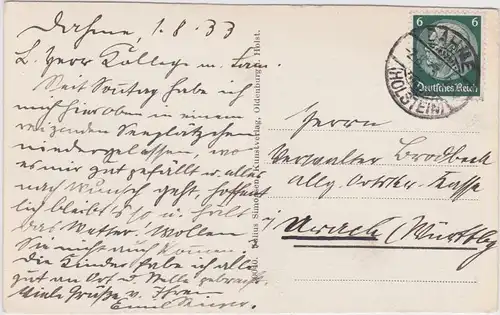 Dahme, 1.8.33
L. Herr Kollege u. Frau.
Seit Sonntag habe ich
mich hier oben in einem
reizenden Seeplätzchen
niedergelassen, wo
es mir gut gefällt u. alles
nach Wunsch geht hoffent
lich bleibt's so u. hält
das Wetter! Wollen
Sie nicht auch kommen.
Die Kinder habe ich alle
gut an Ort u. Stelle gebracht.
Viele Grüße v. Ihrem
Emil
Julius Simonsen, Kunstverlag, Oldenburg i. Holst.
6 6
Deutsches Reich
DAHME
(HOLSTEIN)
Herrn
Verwalter Brodbeck
Allg. Ortskr. Kasse
Urach (Württbg